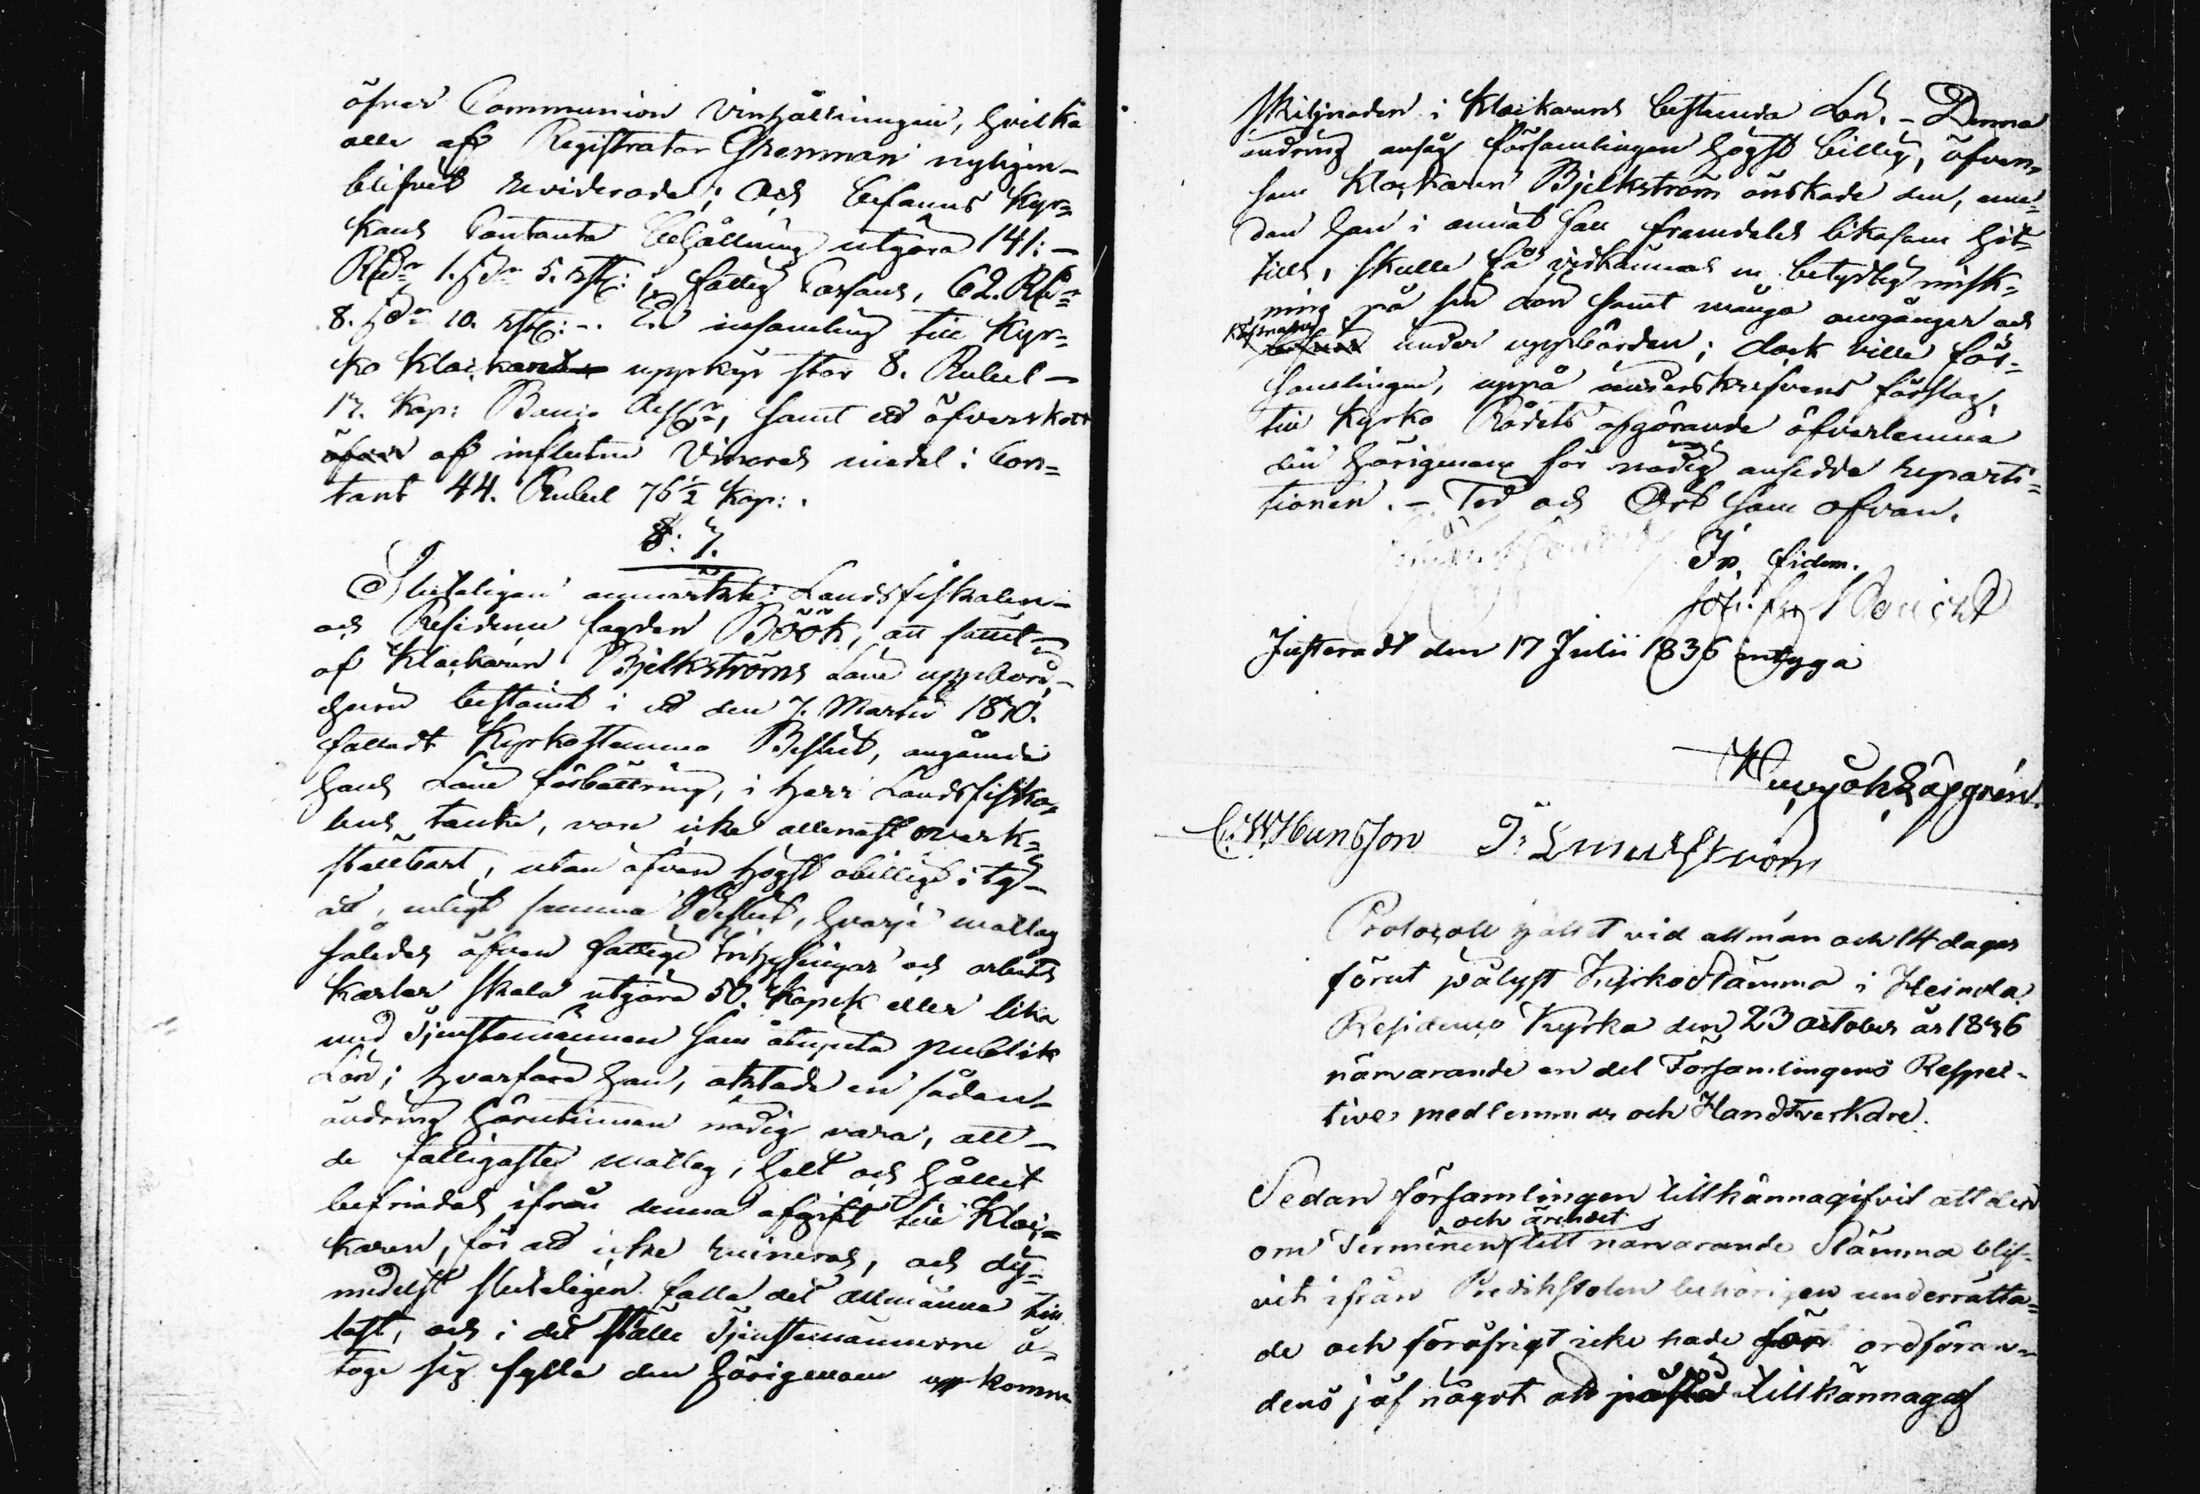 öfver Communion Vinhållningen, hvilka
alla af Registrator Grenman nyligen
blifvit reviderade; Och befanns Kyr=
kans Contanta behållning utgöra 141:
R:dr 1. s:dr 5. rst:, fattig Cassans, 62. R:dr
8. s:dr 10. rst: -. En insamling till Kyr=
ko Klockans uppköp stor 8. Rubel
17. Kop: Banco Ass:r, samt ett öfverskott
af influtne Vinords medel i Con=
tant 44. Rubel 76 1/2 Kop:.
§: 7.
Sluteligen anmärkte Landsfiskalen
och Residence fogden Böök, att sättet
af Klockaren Bjelkströms Löne uppbörd,
genom bestämt i ett den 7. Martii 1830.
fattadt Kyrkostämmo Beslut, angående
hans Löne förbättring, i Herr Landsfiska=
lens tanke, vore icke allenast overk=
ställbart, utan äfven högst obilligt i ty
att, enligt samma Beslut, hvarje matlag
således äfven fattige Inhysingar och arbets
Karlar skola utgöra 50. Kopek eller lika
med Tjenstemännen som åtnjuta publik
Lön; hvarföre han, aktade en sådan
ändring härutinnan nödig vara, att
de fattigaste matlag, helt och hållet
befriades ifrån denna afgift till Kloc=
karen, för att icke ruineras, och dy=
medelst sluteligen falla det allmänna till
last, och i det ställe Tjenstemännerne å=
toge sig fylla den härigenom uppkomne
skilnaden i Klockarens bestämda Lön. - Denna
ändring ansåg församlingen högst billig, äfven=
som Klockaren Bjelkström önskade den, eme=
dan han i annat fall framdeles likasom hit=
tills, skulle få vidkännas en betydlig minsk=
ning på sin Lön samt många omgånger och
kostnader under uppbörden; dock ville för=
samlingen, uppå underskrifvens förslag,
till Kyrko Rådets afgörande öfverlemna
den härigenom för nödig ansedda reparti=
tionen. - Tid och Ort som ofvan.
In fidem.
Justeradt den 17 Julii 1836 intyga
C. W. Hansson
Protocoll hållet vid allmän och 14 dagar
förut pålyst Kyrkostämma i Heinola
Residence Kyrka den 23 october år 1836
närvarande en del Församlingens Respec=
tive medlemmar och Handtverkare.
Sedan församlingen tillkännagifvit att den
och ärendet
om Terminen till närvarande Stämma blif=
vit ifrån Predikstolen behörigen underrätta=
de och föröfrigt icke hade för ordföran=
dens jäf något att påstå tillkännagaf